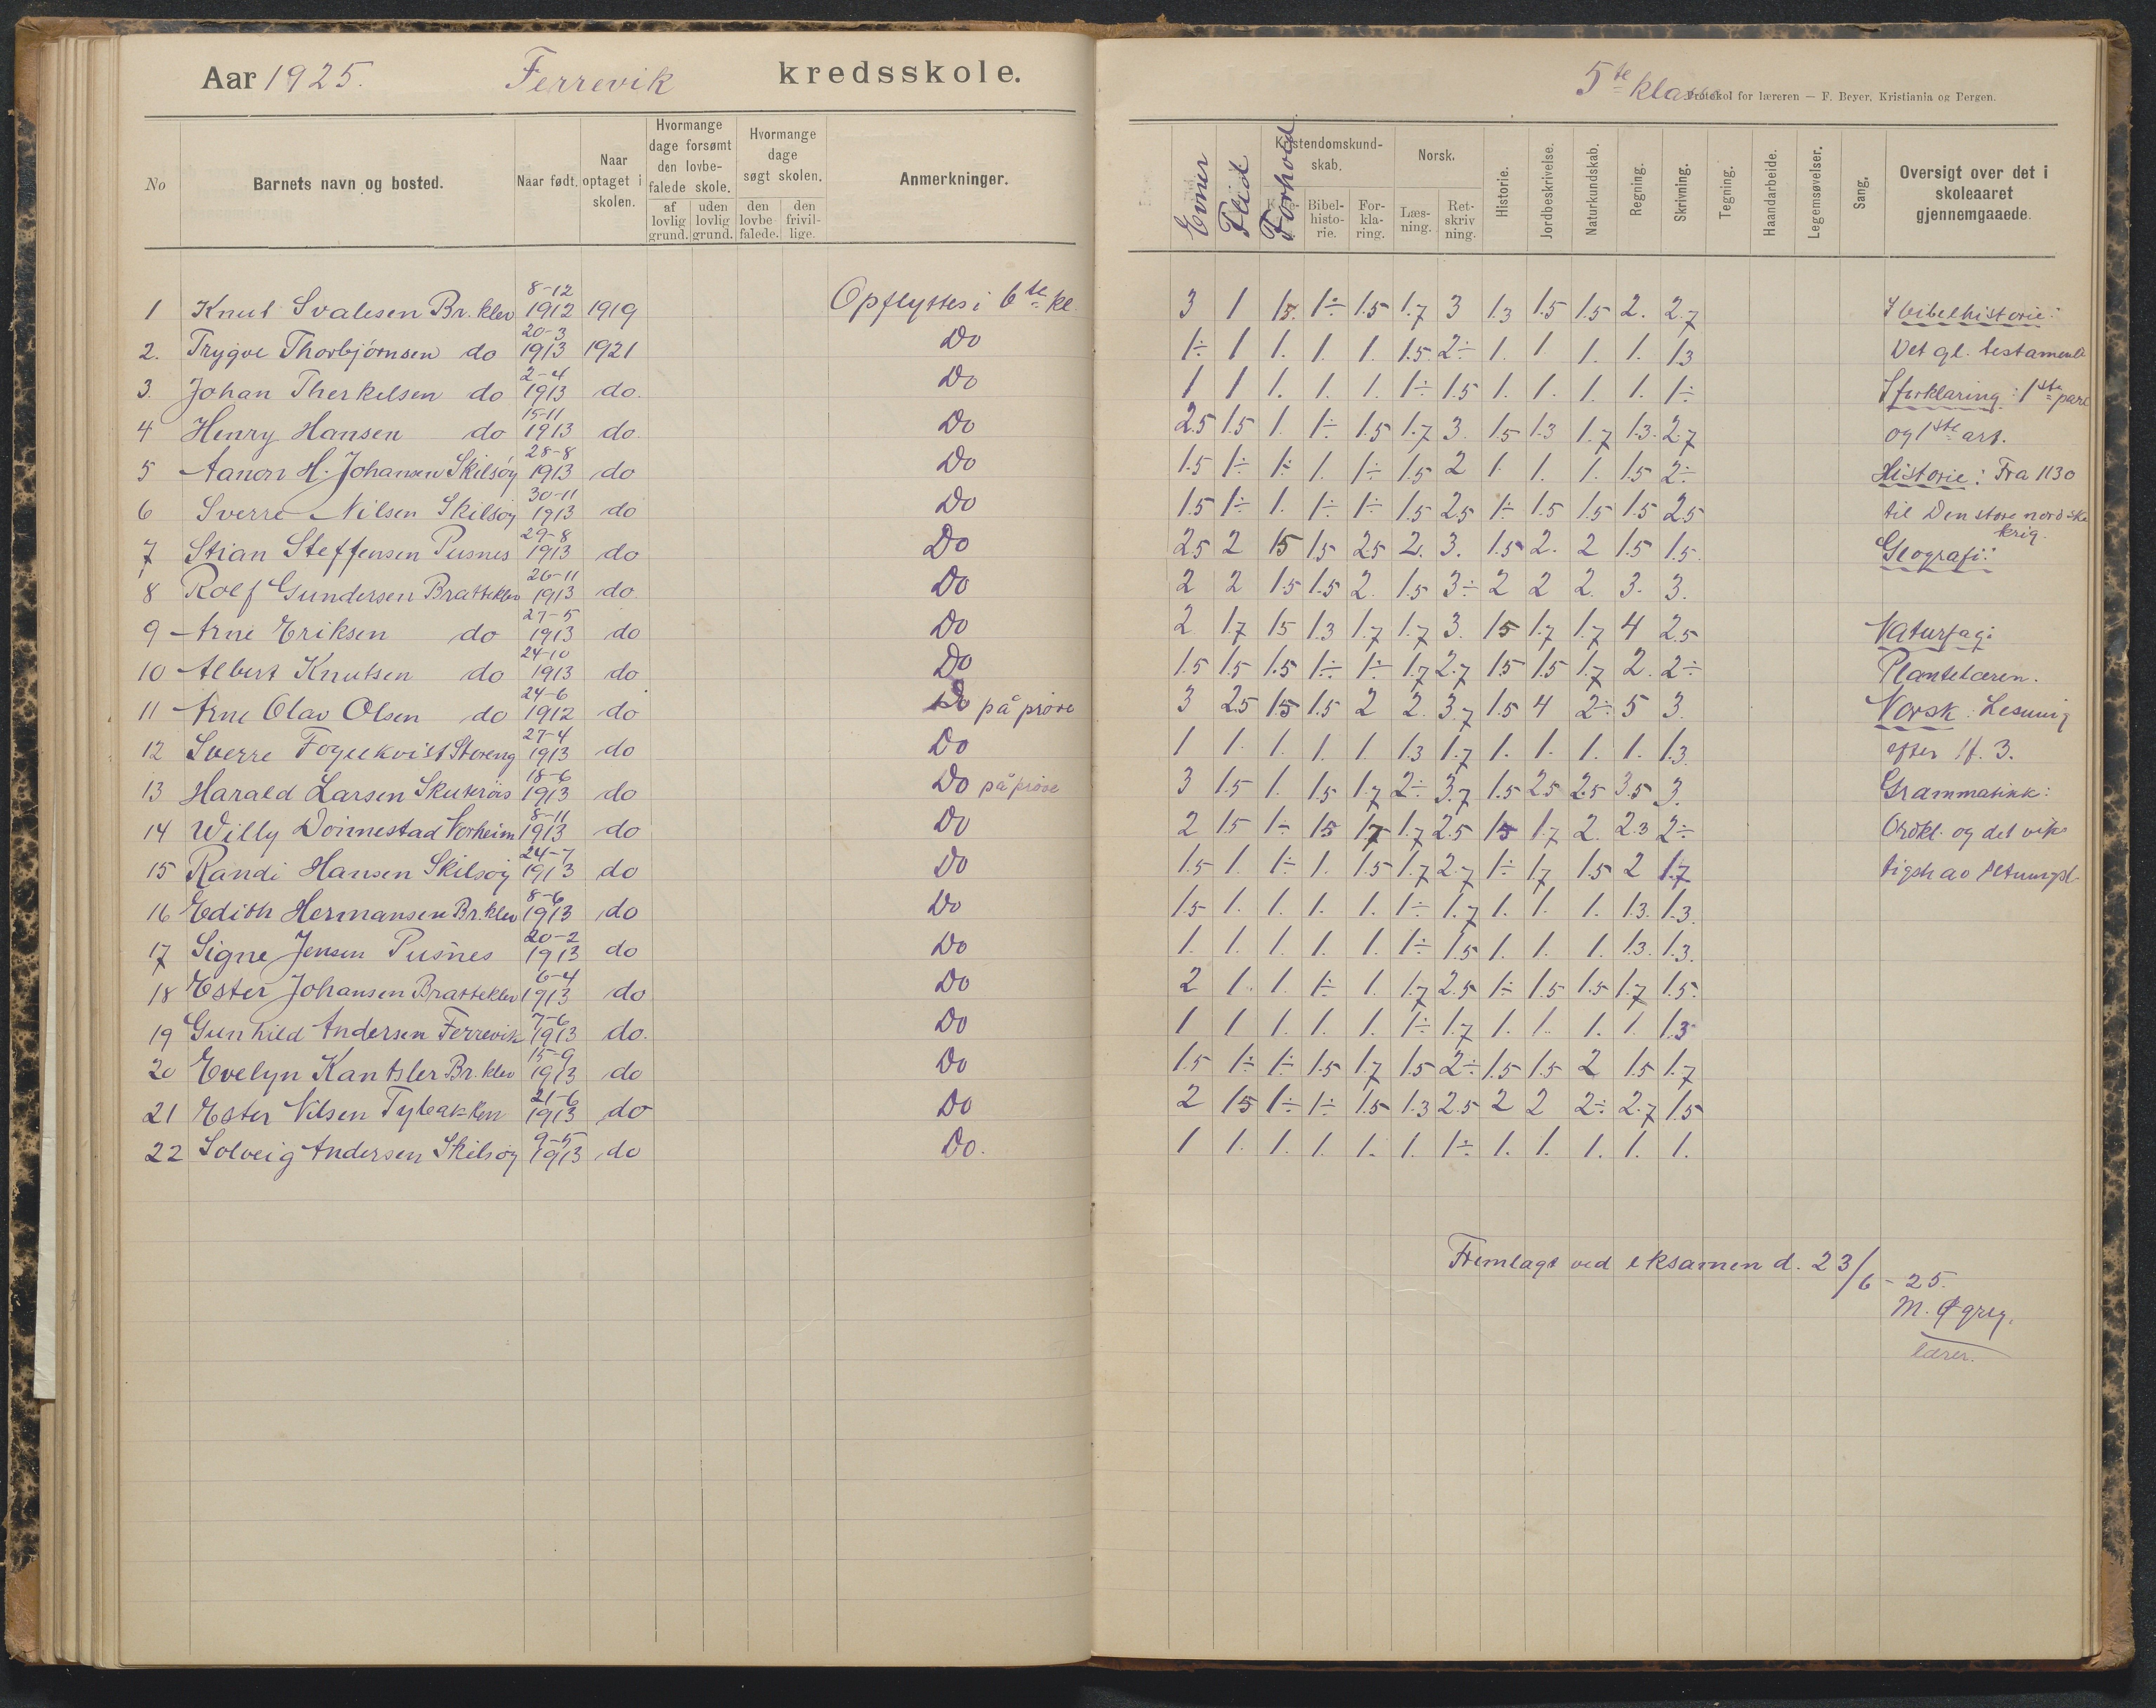 Aar 1925. Ferrevik kredsskole.
No
Barnets navn og bosted.
Naar født.
Naar optaget i skolen.
Hvormange dage forsømt den lovbefalede skole.
af lovlig grund.
uden lovlig grund.
Hvormange dage søgt skolen.
den lovbefalede.
den frivillige.
Anmerkninger.
1 Knut Svalesen Br. klev 8-12 1912 1919 Opflyttes i 6te kl.
2. Trygve Thorbjørnsen do 20-3 1913 1921 Do
3. Johan Therkelsen do 2-4 1913 do. Do
4 Henry Hansen do 15-11 1913 do. Do
5 Aanon H. Johansen Skilsøy 28-8 1913 do Do
6 Sverre Nilsen Skilsøy 30-11 1913 do Do
7 Stian Steffensen Pusnes 29-8 1913 do Do
8 Rolf Gundersen Bratteklev 26-11 1913 do. Do
9 Arne Eriksen do 27-5 1913 do Do
10 Albert Knutsen do 24-10 1913 do Do
11 Arne Olav Olsen do 24-6 1912 do Do på prøve
12 Sverre 27-4 1913 do Do
13 Harald Larsen 18-6 1913 do Do på prøve
14 Willy 8-11 1913 do Do
15 Randi Hansen Skilsøy 24-7 1913 do Do
16 Edith Hermansen Br. klev 8-6 1913 do Do
17 Signe Jensen Pusnes 20-2 1913 do Do
18 Ester Johansen Bratteklev 6-4 1913 do Do
19 Gunhild Andersen Ferrevik 7-6 1913 do. Do
20 Evelyn Kantsler Br. klev 15-9 1913 do Do
21 Ester Nilsen Tybakken 21-6 1913 do Do
22 Solveig Andersen Skilsøy 9-5 1913 do Do.
5te klasse
Protokol for læreren — F. Beyer, Kristiania og Bergen.
Evner
Flid
Forhold
Kristendomskundskab.
Bibelhistorie.
Forklaring.
Norsk.
Læsning.
Retskrivning.
Historie.
Jordbeskrivelse.
Naturkundskab.
Regning.
Skrivning.
Tegning.
Haandarbeide.
Legemsøvelser.
Sang.
Oversigt over det i skoleaaret gjennemgaaede.
3 1 1.5. 1÷ 1.5 1.7 3 1.3 1.5 1.5 2. 2.7
1÷ 1 1. 1. 1. 1.5 2÷ 1. 1. 1. 1. 1.3
1 1 1. 1. 1. 1÷ 1.5 1. 1. 1. 1. 1÷
2.5 1.5 1. 1÷ 1.5 1.7 3. 1.5 1.3 1.7 1.3. 2.7
1.5 1÷ 1÷ 1. 1÷ 1.5 2 1. 1. 1. 1.5 2÷
1.5 1÷ 1. 1÷ 1÷ 1.5 2.5 1÷ 1.5 1.5 1.5 2.5
2.5 2 1.5 1.5 2.5 2. 3. 1.5 2. 2 1.5 1.5
2 2 1.5 1.5 2. 1.5 3÷ 2 2 2. 3. 3.
2 1.7 1.5 1.3 1.7 1.7 3. 1.5 1.7 1.7 4 2.5
1.5 1.5 1.5 1÷ 1÷ 1.7 2.7 1.5 1.5 1.7 2. 2÷
3 2.5 1.5 1.5 2 2. 3.7 1.5 4 2÷ 5 3.
1 1. 1. 1. 1. 1.3 1.7 1. 1. 1. 1. 1.3.
3 1.5 1. 1.5 1.7 2÷ 3.7 1.5 2.5 2.5 3.5 3.
2 1.5 1÷ 1.5 1.7 1.7 2.5 1.5 1.7 2. 2.3 2÷
1.5 1. 1÷ 1. 1.5 1.7 2.7 1÷ 1.7 1.5 2 1.7
1.5 1. 1. 1. 1. 1÷ 1.7 1. 1. 1. 1.3. 1.3.
1. 1. 1. 1. 1. 1÷ 1.5 1. 1. 1. 1.3. 1.3.
2 1. 1. 1÷ 1. 1.7 2.5 1÷ 1.5 1.5 1.7 1.5.
1 1 1. 1. 1. 1÷ 1.7 1. 1. 1. 1. 1.3
1.5 1÷ 1÷ 1.5 1.7 1.5 2÷ 1.5 1.5 2 1.5 1.7
2 1.5 1÷ 1÷ 1.5 1.3 2.5 2 2 2÷ 2.7 1.5
1 1. 1. 1. 1. 1. 1÷ 1. 1. 1. 1. 1.
I bibelhistorie:
Det gl. testamente
I forklaring: 1ste part
og 1ste art.
Historie: Fra 1130
til Den store nordiske
krig.
Geografi:
Naturfag:
Plantelæren.
Norsk: Lesning
efter lf. 3.
Grammatikk:
Ordkl. og det vik-
tigste av
Fremlagt ved eksamen d. 23/6 - 25.
lærer.